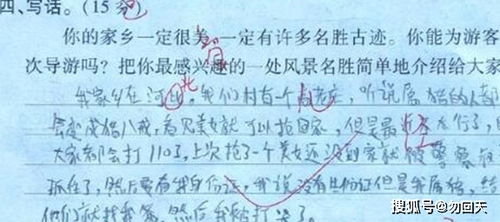 四、写话。(15分)
你的家乡一定很美,一定有许多名胜古迹。你能为游客
次导游吗？把你最感兴趣的一处风景名胜简单地介绍给大家
我家乡在河北,我们村有一个高老庄,听说属猪的人都
会变成猪八戒,看见美女就可以抢回家,但是最近不行了,
大家都会打110了,上次抢了一个美女还没到家就被警察
抓住了,然后要看我身份证,我说没有身份证但是我属猪,
他们就
搜狐号@勿回天